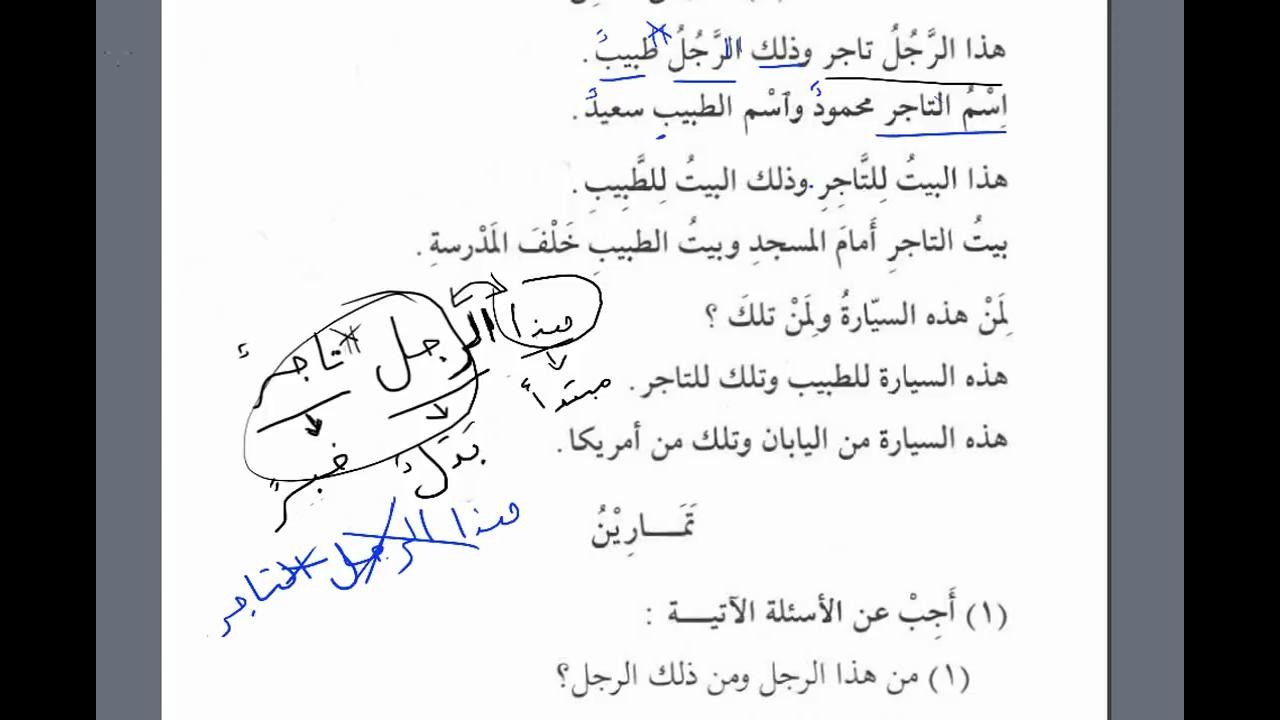 هذا الرَّجُلُ تاجر وذلك الرَّجُلُ طبيبٌ .
اِسْمُ التاجر محمودٌ وٱسْم الطبيبِ سعيدٌ .
هذا البيتُ لِلتَّاجِرِ وذلك البيتُ لِلطَّبِيبِ .
بيتُ التاجرِ أَمامَ المسجدِ وبيتُ الطبيبِ خَلْفَ المَدْرسةِ .
هذا الرجل تاجرٌ
مبتدأ
بَدَلٌ
خبرٌ
لِمَنْ هذه السيّارةُ ولِمَنْ تلكَ ؟
هذه السيارة للطبيب وتلك للتاجر .
هذه السيارة من اليابان وتلك من أمريكا .
هذا الرجل تاجر
تَمَـــارِيْنُ
(١) أَجِبْ عن الأسئلة الآتيـــة :
(١) من هذا الرجل ومن ذلك الرجل؟